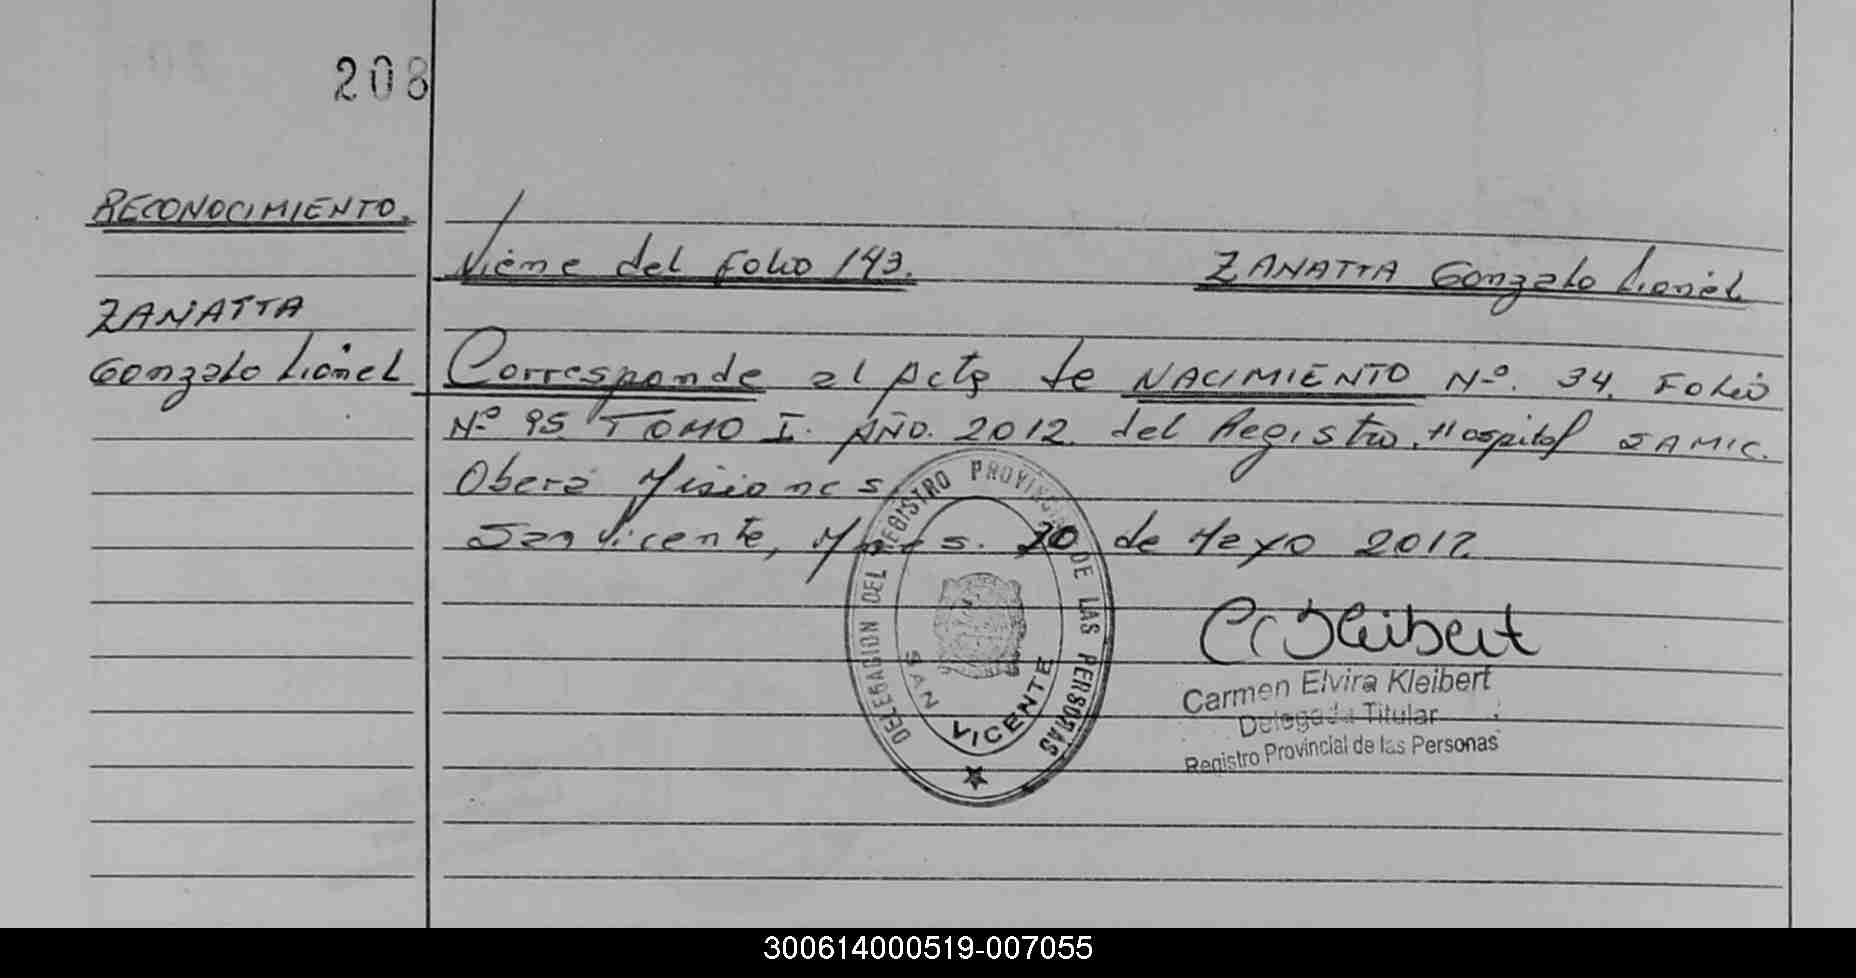 208
RECONOCIMIENTO.
Viene del Folio 143. ZANATTA Gonzalo Lionel
ZANATTA
Gonzalo Lionel
Corresponde al Acta de NACIMIENTO Nº. 34. Folio
Nº 95 TOMO I. AÑO. 2012. del Registro. Hospital SAMIC.
Oberá Misiones
San Vicente, Mnes. 20 de Mayo 2012
DELEGACION DEL REGISTRO PROVINCIAL DE LAS PERSONAS
SAN VICENTE
C Kleibert
Carmen Elvira Kleibert
Delegada Titular
Registro Provincial de las Personas
300614000519-007055